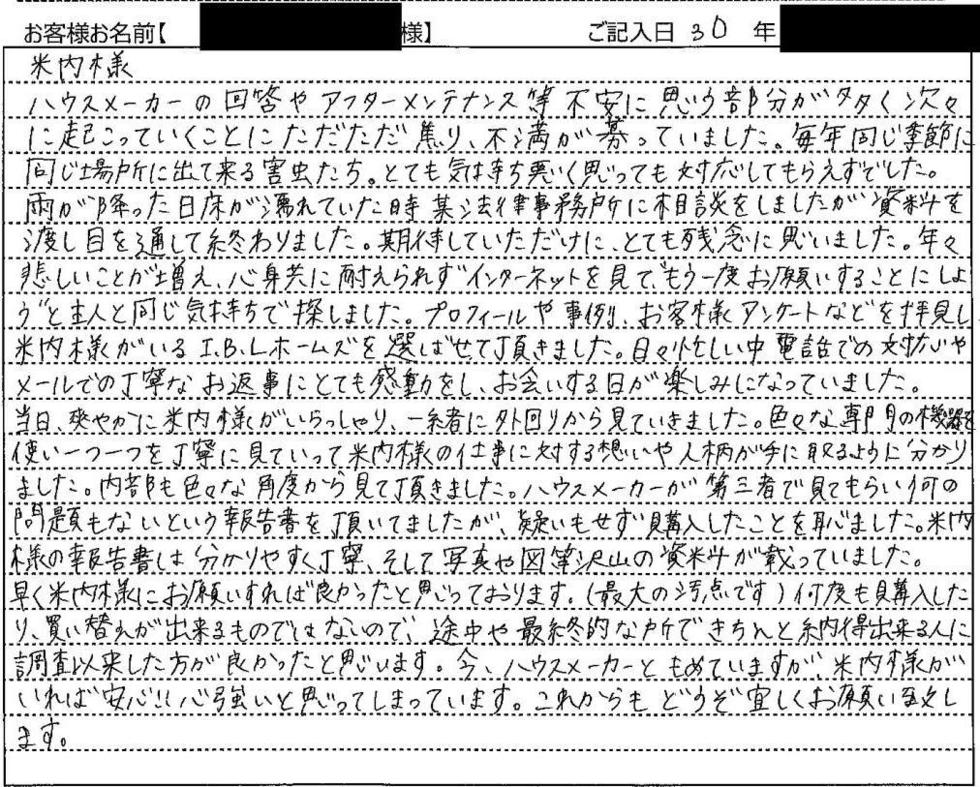 お客様お名前【 様】 ご記入日 30 年
米内様
ハウスメーカーの回答やアフターメンテナンス等不安に思う部分が多く次々
に起こっていくことにただただ焦り、不満が募っていました。毎年同じ季節に
同じ場所に出て来る害虫たち。とても気持ち悪いく思っても対応してもらえずでした。
雨が降った日床が濡れていた時某法律事務所に相談をしましたが資料を
渡し目を通して終わりました。期待していただけに、とても残念に思いました。年々
悲しいことが増え、心身共に耐えられずインターネットを見て"もう一度お願いすることにしよ
う"と主人と同じ気持ちで探しました。プロフィールや事例、お客様アンケートなどを拝見し
米内様がいるI.B.Lホームズを選ばせて頂きました。日々忙しい中電話での対応や
メールでの丁寧なお返事にとても感動をし、お会いする日が楽しみになっていました。
当日、爽やかに米内様がいらっしゃり、一緒に外回りから見ていきました。色々な専門の機器を
使い一つ一つを丁寧に見ていって米内様の仕事に対する想いや人柄が手に取るように分かり
ました。内部も色々な角度から見て頂きました。ハウスメーカーが第三者で見てもらい何の
問題もないという報告書を頂いてましたが、疑いもせず購入したことを恥じました。米内
様の報告書は分かりやすく丁寧、そして写真や図等沢山の資料が載っていました。
早く米内様にお願いすれば良かったと思っております。(最大の汚点です)何度も購入した
り、買い替えが出来るものではないので、途中や最終的な所できちんと納得出来る人に
調査以来した方が良かったと思います。今、ハウスメーカーともめていますが、米内様が
いれば安心!!心強いと思ってしまっています。これからもどうぞ宜しくお願い致し
ます。